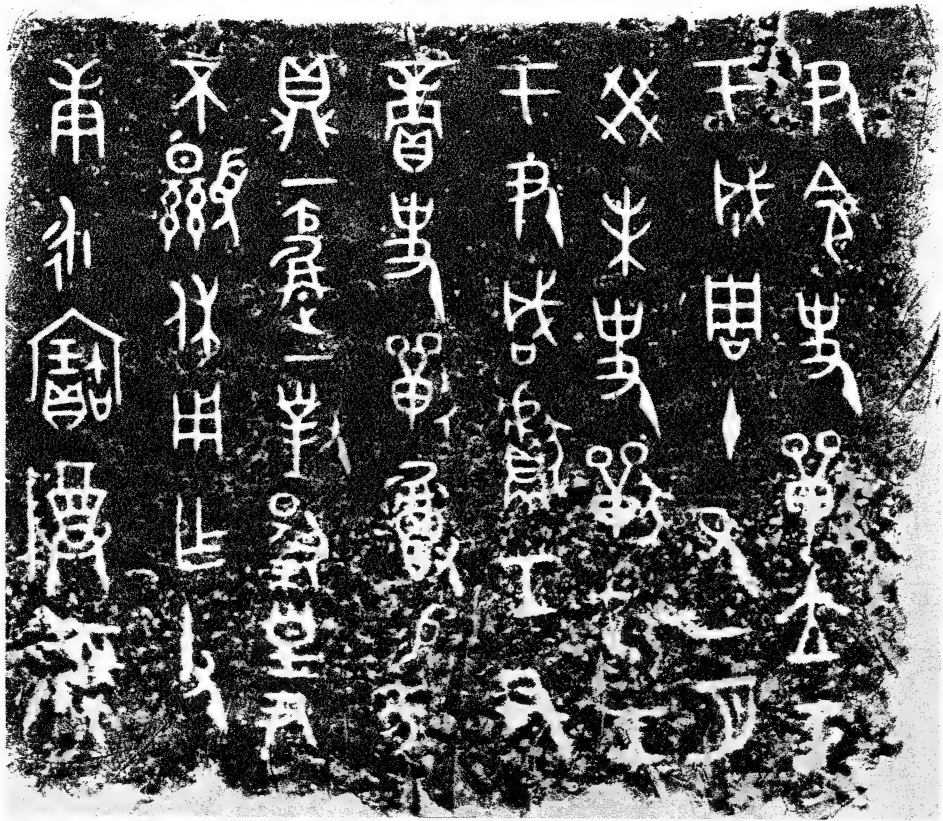 尹令史獸立工
于成周十又一月
癸未史獸獻工
于尹咸獻工尹
賞史獸祼易豕
鼎一爵一對揚皇尹
不顯休用乍父
庚永寶尊彝